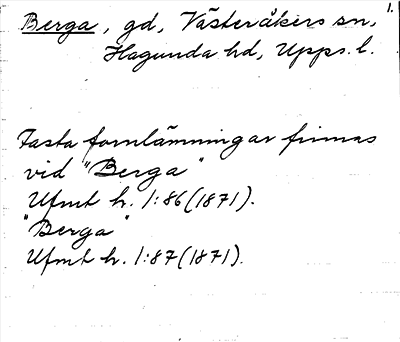 1.
Berga, gd, Västeråkers sn,
Hagunda hd, Upps. l.
Fasta fornlämningar finnas
vid "Berga"
Ufmt h. 1:86 (1871).
"Berga"
Ufmt h. 1:87 (1871).